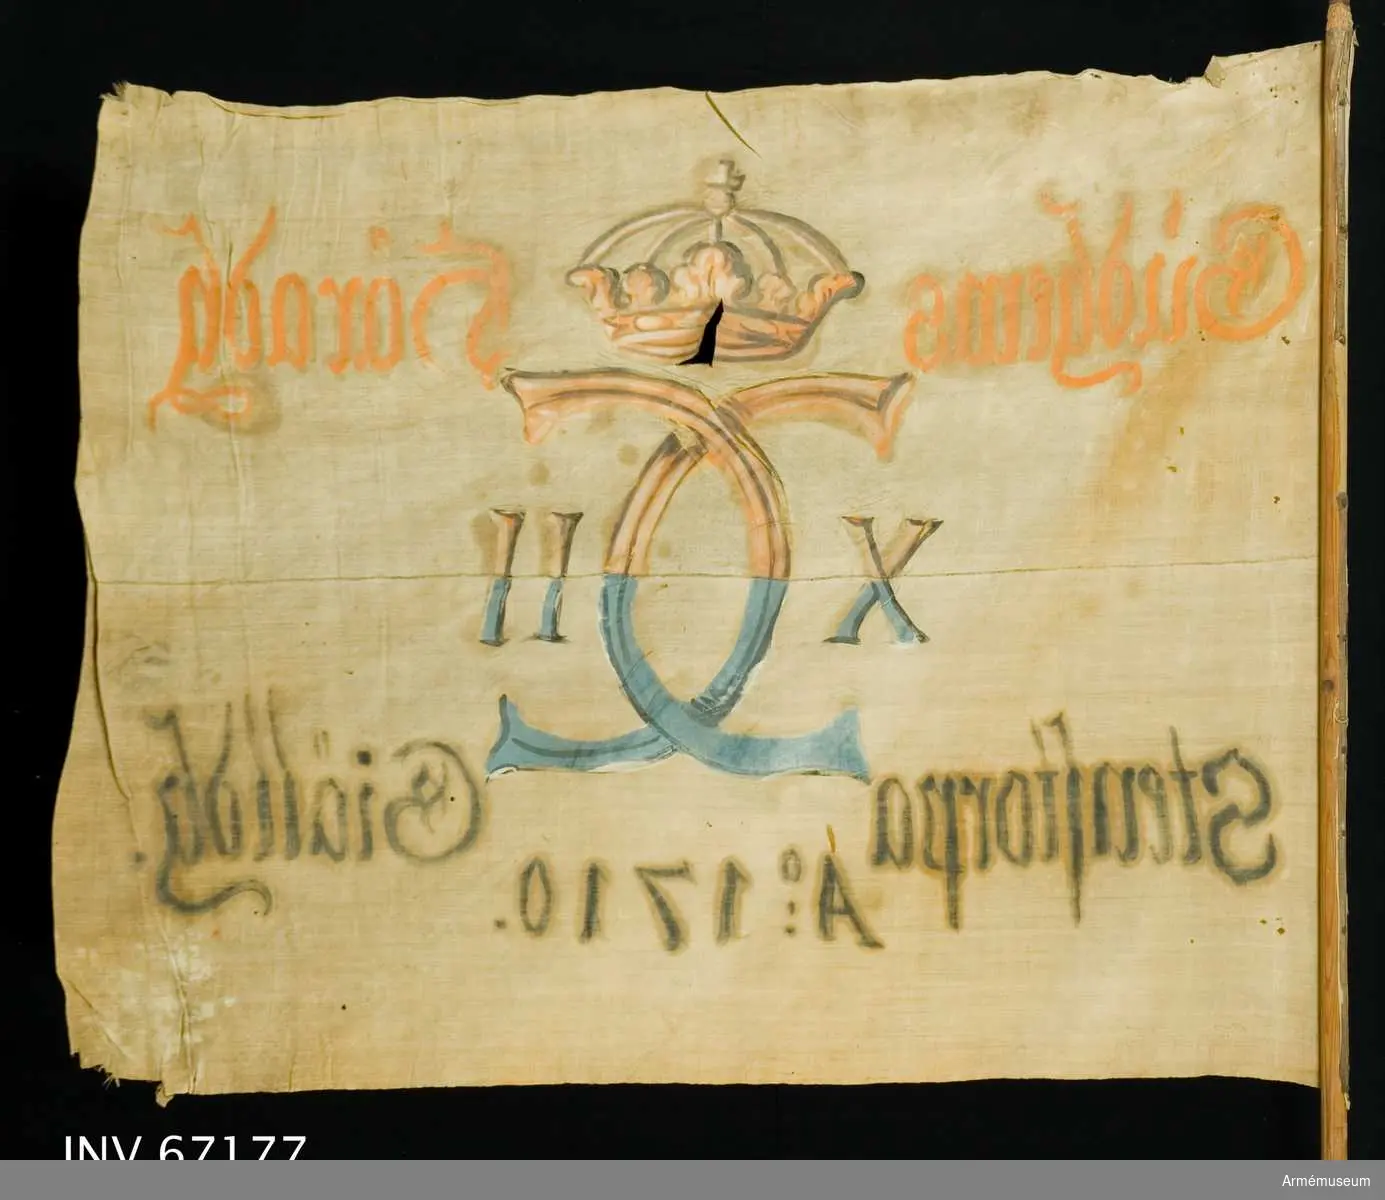 Gúdhems Häradh
X II
Stenstorpa Giälldh.
Aº: 1710.
INV 67177
Armémuseum